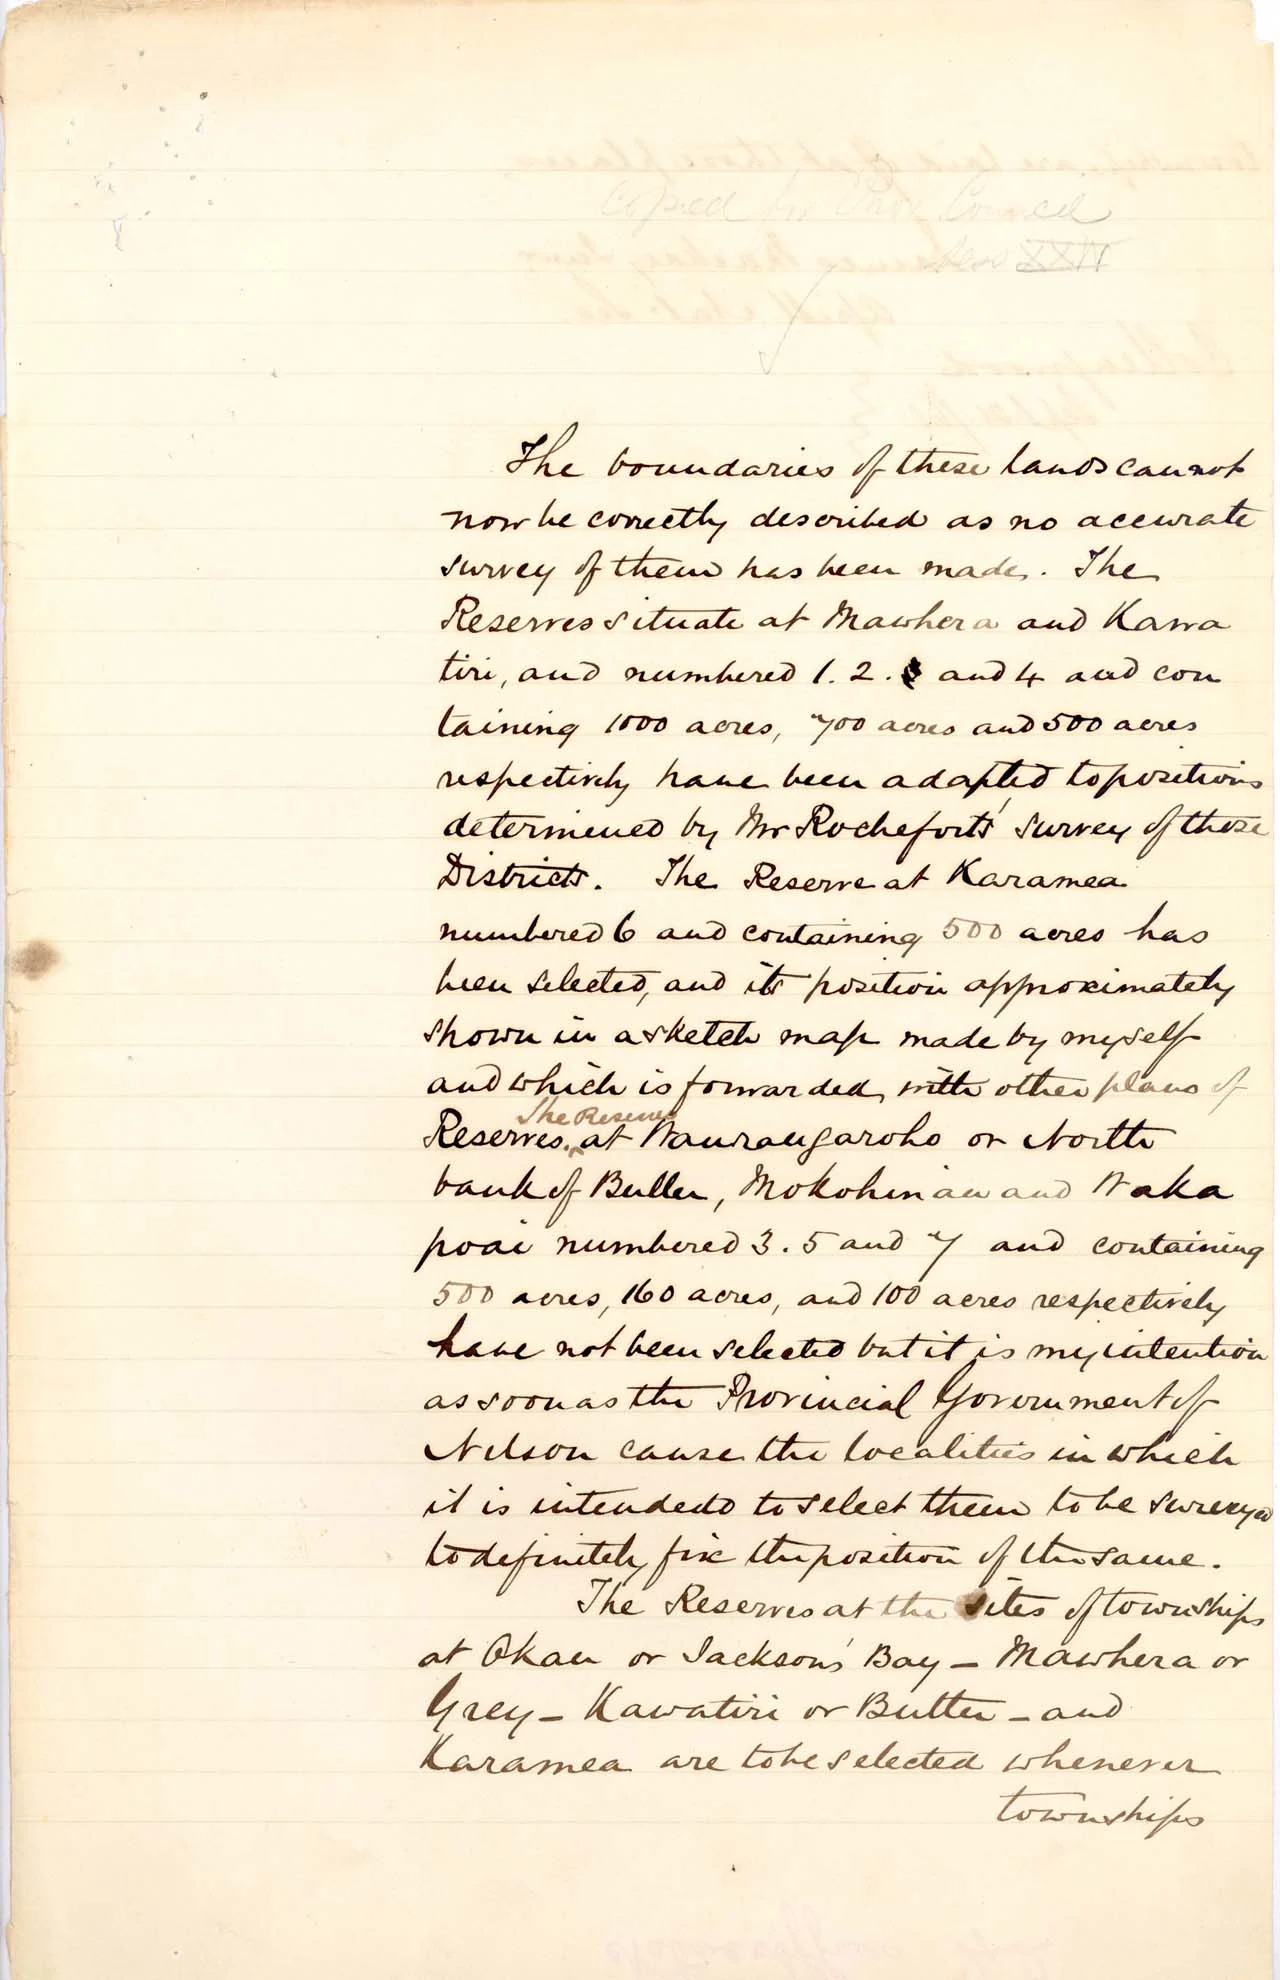 Copied for Prov Council
Sess XXIV
The boundaries of these lands cannot
now be correctly described as no accurate
survey of them has been made. The
Reserves situate at Mawhera and Kawa
tiri, and numbered 1. 2. and 4 and con
taining 1000 acres, 700 acres and 500 acres
respectively have been adapted to positions
determined by Mr Rochefort's survey of those
Districts. The Reserve at Karamea
numbered 6 and containing 500 acres has
been selected, and its position approximately
shown in a sketch map made by myself
and which is forwarded with other plans of
The Reserves
Reserves. at Waurangaroho or North
bank of Buller, Mokohinau and Waka
poai numbered 3. 5 and 7 and containing
500 acres, 160 acres, and 100 acres respectively
have not been selected but it is my intention
as soon as the Provincial Government of
Nelson cause the localities in which
it is intended to select them to be surveyed
to definitely fix the position of the same.
The Reserves at the sites of townships
at Okau or Jackson's Bay – Mawhera or
Grey – Kawatiri or Buller – and
Karamea are to be selected whenever
townships